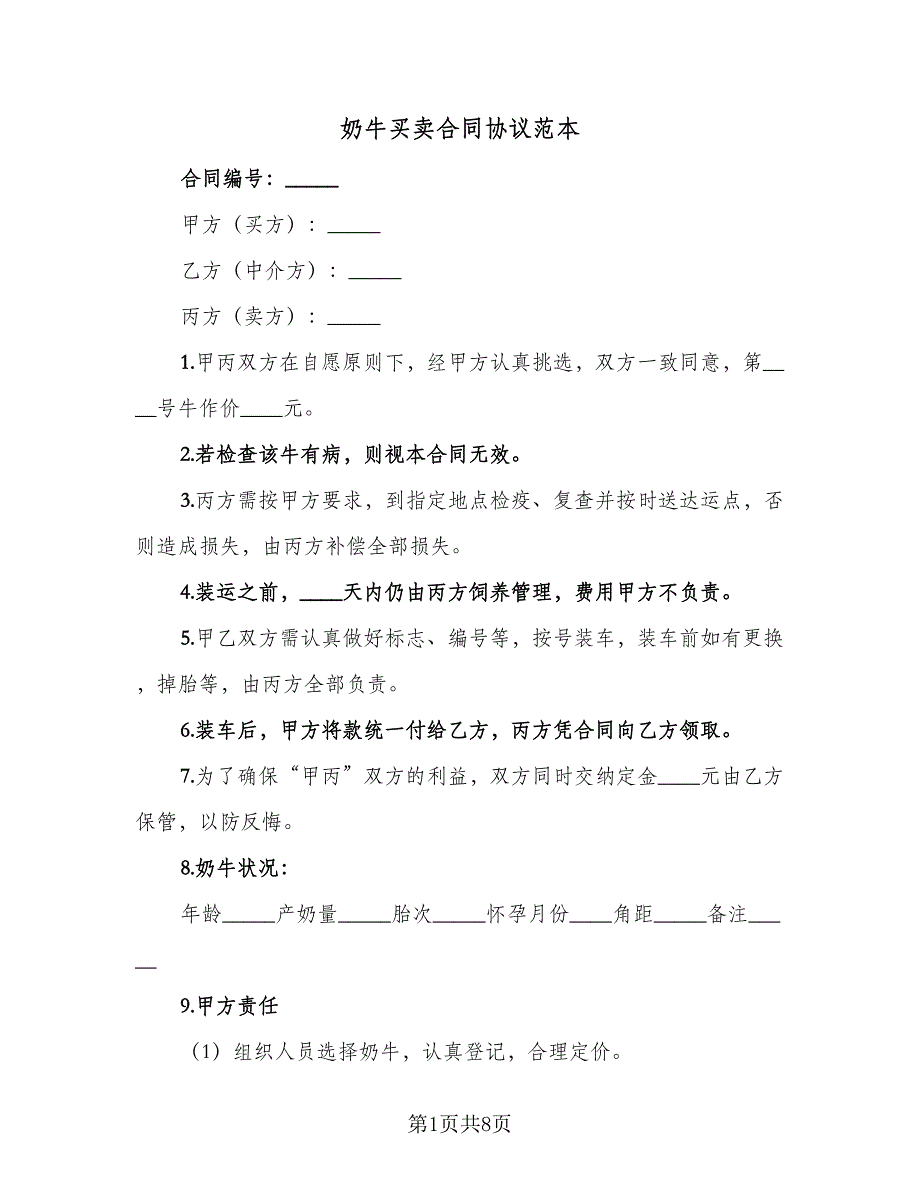 奶牛买卖合同协议范本
合同编号：_____
甲方（买方）：_____
乙方（中介方）：_____
丙方（卖方）：_____
1.甲丙双方在自愿原则下，经甲方认真挑选，双方一致同意，第__
__号牛作价____元。
2.若检查该牛有病，则视本合同无效。
3.丙方需按甲方要求，到指定地点检疫、复查并按时送达运点，否
则造成损失，由丙方补偿全部损失。
4.装运之前，____天内仍由丙方饲养管理，费用甲方不负责。
5.甲乙双方需认真做好标志、编号等，按号装车，装车前如有更换
，掉胎等，由丙方全部负责。
6.装车后，甲方将款统一付给乙方，丙方凭合同向乙方领取。
7.为了确保“甲丙”双方的利益，双方同时交纳定金____元由乙方
保管，以防反悔。
8.奶牛状况：
年龄_____产奶量_____胎次_____怀孕月份____角距_____备注___
__
9.甲方责任
（1）组织人员选择奶牛，认真登记，合理定价。
第1页共8页